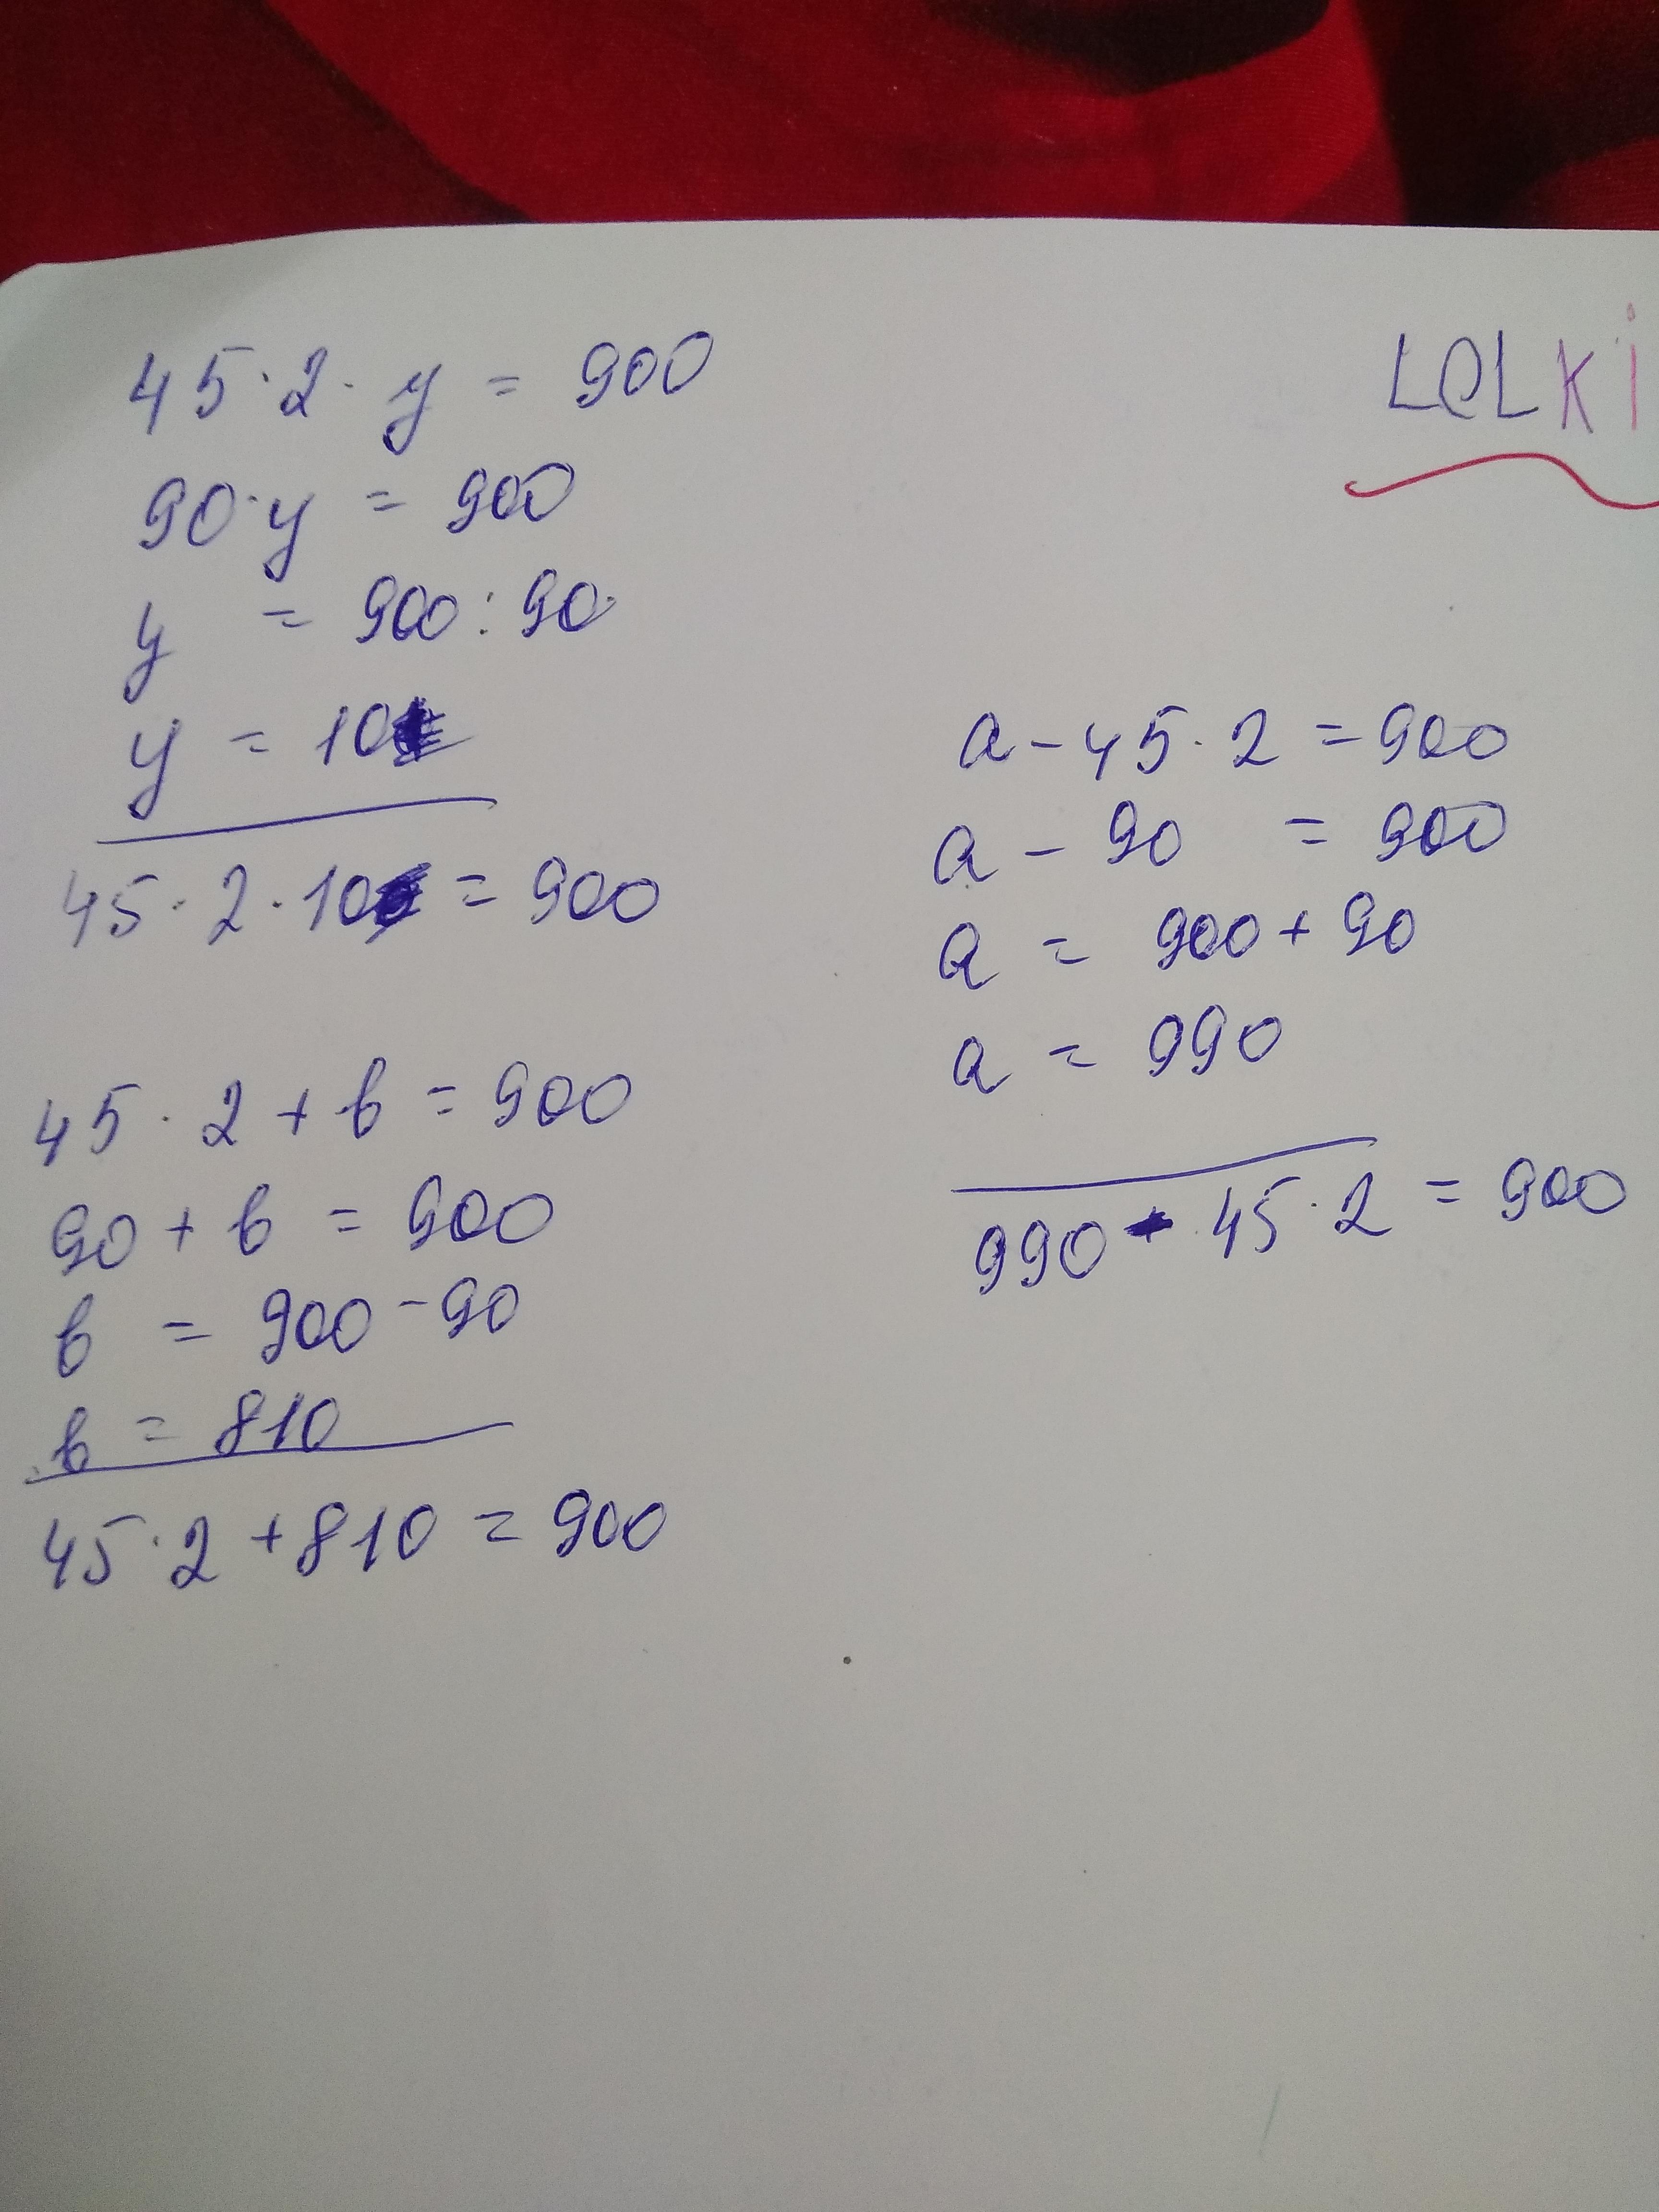 LOLKi
45·2·y = 900
90·y = 900
y = 900:90
y = 10
45·2·10 = 900
45·2+b = 900
90+b = 900
b = 900-90
b = 810
45·2+810 = 900
a-45·2 = 900
a-90 = 900
a = 900+90
a = 990
990-45·2 = 900